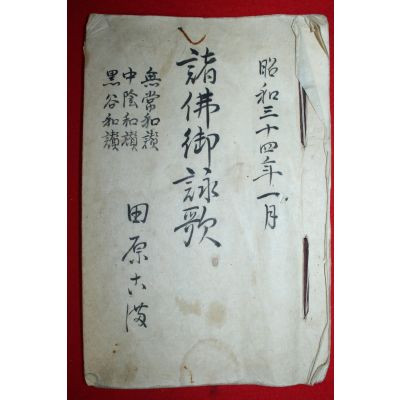 昭和三十四年一月
諸佛御詠歌
無常和讃
中陰和讃
黒谷和讃
田原